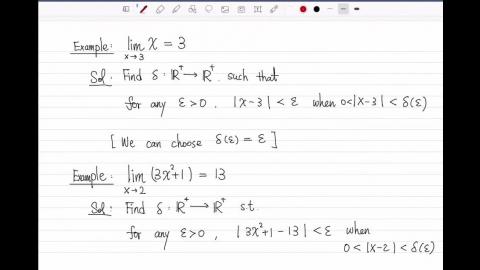 Example: lim x→3 x = 3
Sol: Find δ: ℝ⁺ → ℝ⁺ such that
for any ε>0, |x-3| < ε when 0<|x-3| < δ(ε)
[ We can choose δ(ε) = ε ]
Example: lim x→2 (3x²+1) = 13
Sol: Find δ: ℝ⁺ → ℝ⁺ s.t.
for any ε>0, |3x²+1-13| < ε when
0<|x-2| < δ(ε)